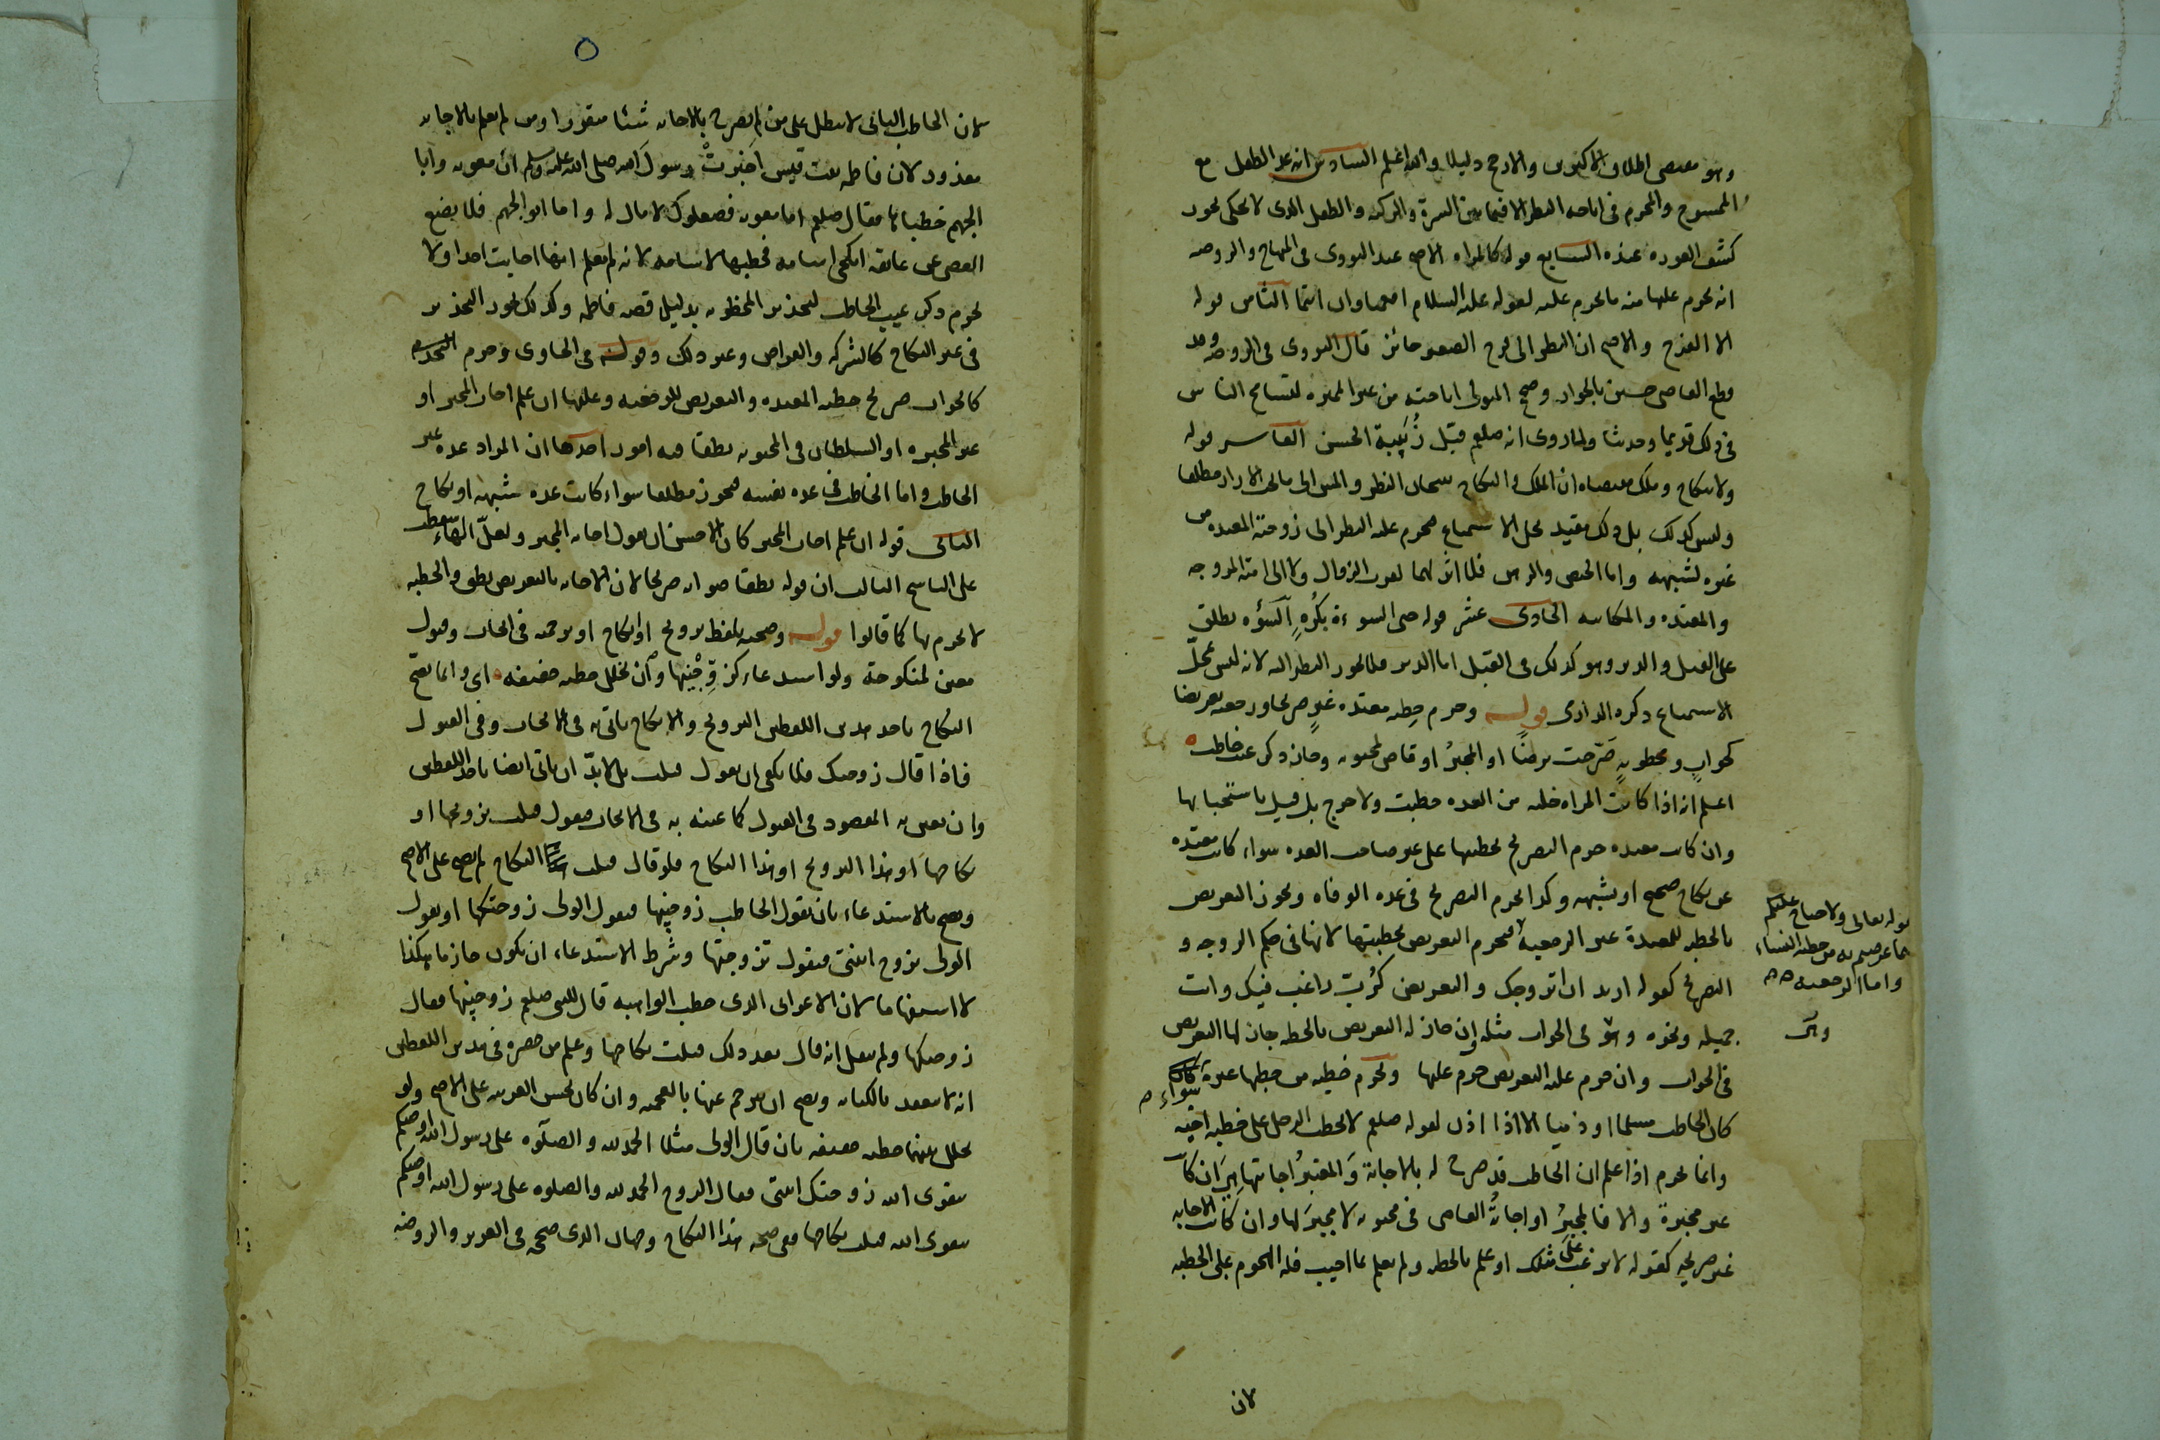 وهو مقتضى اطلاق الاكثرين والارجح دليلا والله اعلم السادس انه عد الطفل مع
الممسوح والمحرم فى اباحه النظر الا فيما بين السرة والركبه والطفل الذى لا يحكى يجوز
كشف العوره عنده السابع قوله كالمراه الاصح عند النووى فى المنهاج والروضه
انه يحرم عليها منه ما يحرم عليه لقوله عليه السلام افعمياوان انتما الثامن قوله
الا الفرج والاصح ان النظر الى فرج الصغير جائز قال النووى فى الروضه وقد
قطع القاضى حسين بالجواز وصحح المتولى اباحته من غير المميزه لتسامح الناس
فى ذلك قديما وحديثا ولما روى انه صلعم قبل زُبَيبة الحسن العاشر قوله
ولا نكاح وملك مقتضاه ان الملك والنكاح يبيحان النظر والمس الى ما لى الازار مطلقا
وليس كذلك بل ذلك مقيد بمحل الاستمتاع فيحرم عليه النظر الى زوجته المعتده من
غيره لشبهه واما الحيض والرهن فلا اثر لهما لقرب الزوال ولا الى امته المزوجه
والمعتده والمكاتبه الحادى عشر قوله حتى السوءة بكُرهٍ السَوءه يطلق
على القبل والدبر وهو كذلك فى القبل اما الدبر فلا يجوز النظر اليه لانه ليس محلّ
الاستمتاع ذكره الدارمى قوله وحرم خِطبه معتده غيرٍ صريحا ورجعيه تعريضا
كجوابٍ ومخطوبهٍ صَرّحت برضًا او المجبرُ او قاض لمجنونه وجاز ذكر عيب خاطب
اعلم انه اذا كانت المراه خليه من العده خطبت ولا حرج بل قيل باستحبابها
وان كانت معتده حرم التصريح بخطبتها على غير صاحب العده سواء كانت معتده
عن نكاح صحيح او بشبهه وكذا يحرم التصريح فى عده الوفاه ويجوز التعريض
بالخطبه للمعتدة غير الرجعية فيحرم التعريض بخطبتها لانها فى حكم الزوجه و
التصريح كقوله اريد ان اتزوجك والتعريض كرُبّ راغب فيك وانت
جميله ونحوه وهو فى الجواب مثله إن جاز له التعريض بالخطبه جاز لها التعريض
فى الجواب وان حرم عليه التعريض حرم عليها ويحرم خطبه من خطبها غيره سواء
كان الخاطب مسلما او ذميا الا اذا اذن لقوله صلعم لا يخطب الرجل على خطبه اخيه
وانما يحرم اذا علم ان الخاطب قد صرح له بالاجابة وَالمعتبرُ اجابتها هِيَ ان كانت
غير مجبرة والا فالمجبرُ او اجابةُ القاضى فى مجنونه لا مجبرَ لها وان كانت الاجابه
غير صريحه كقوله لا يرغب عن مثلك او علم بالخطبه ولم يعلم بما اجيب فله الهجوم على الخطبه
لان
قوله تعالى ولا جناح عليكم
فيما عرضتم به من خطبه النساء
واما الرجعيه
لان الخاطب الثانى لا يبطل على من لم يصرح بالاجابه شيئا متقررا ومن لم يعلم بالاجابه
معذور لان فاطمه بنت قيس اخبَرتْ رسولَ الله صلى الله عليه وسلم انّ معويه وابا
الجهم خطباها فقال صلعم اما معويه فصعلوك لا مال له واما ابو الجهم فلا يضع
العصى عن عاتقه انكحى اسامه فخطبها لاسامه لانه لم يعلم انها اجابت احدا ولا
يحرم ذكر عيب الخاطب لتحذير المخطوبه بدليل قصه فاطمه وكذلك يجوز التحذير
فى غير النكاح كالشركه والقراض وغير ذلك وقوله فى الحاوى وحرم التحدى
كالجواب صريح خطبه المعتده والتعريض للرجعيه وعليها ان علم اجاب المجبر او
غير المجبره او السلطان فى المجنونه نطقا فيه امور احدها ان المراد عده غير
الخاطب واما الخاطب فى عده نفسه فيجوز مطلقا سواء كانت عده شبهه او نكاح
الثانى قوله ان علم اجاب المجبر كان الاحسن ان يقول اجابه المجبر ولعلّ الهاء سقطت
على الناسخ الثالث ان قوله نطقا صوابه صريحا لان الاجابه بالتعريض نطق والخطبه
لا يحرم بها كما قالوا قوله وصحته بلفظ تزويج او انكاح او ترجمه فى ايجاب وقبول
معين لمنكوحة ولو استدعاء كزَوِّجْنِيها وان تخلل خطبه خفيفه اى وانما يصح
النكاح باحد هذين اللفظين التزويج والانكاح ياتى به فى الايجاب وفى القبول
فاذا قال زوجتك فلا يكفى ان يقول قبلت بل لا بدّ ان ياتى ايضا باحد اللفظين
وان يعين به المقصود فى القبول كما عينه به فى الايجاب فيقول قبلت تزويجها او
نكاحها او هذا التزويج او هذا النكاح فلو قال قبلت النكاح لم يصح على الاصح
ويصح بالاستدعاء بان يقول الخاطب زوجنيها فيقول الولى زوجتكها او يقول
الولى تزوج ابنتى فيقول تزوجتها وشرط الاستدعاء ان يكون جازما هكذا
لا استفهاما لان الاعرابى الذى خطب الواهبه قال للنبى صلعم زوجنيها فقال
زوجتكها ولم ينقل انه قال بعد ذلك قبلت نكاحها وعلم من حصره فى هذين اللفظين
انه لا ينعقد بالكنايه ويصح ان يترجم عنها بالعجميه وان كان يحسن العربيه على الاصح ولو
تخلل بينهما خطبه خفيفه بان قال الولى مثلا الحمد لله والصلوه على رسول الله اوصيكم
بتقوى الله زوجتك ابنتى فقال الزوج الحمد لله والصلوه على رسول الله اوصيكم
بتقوى الله قبلت نكاحها ففى صحه هذا النكاح وجهان الذى صححه فى العزيز والروضه